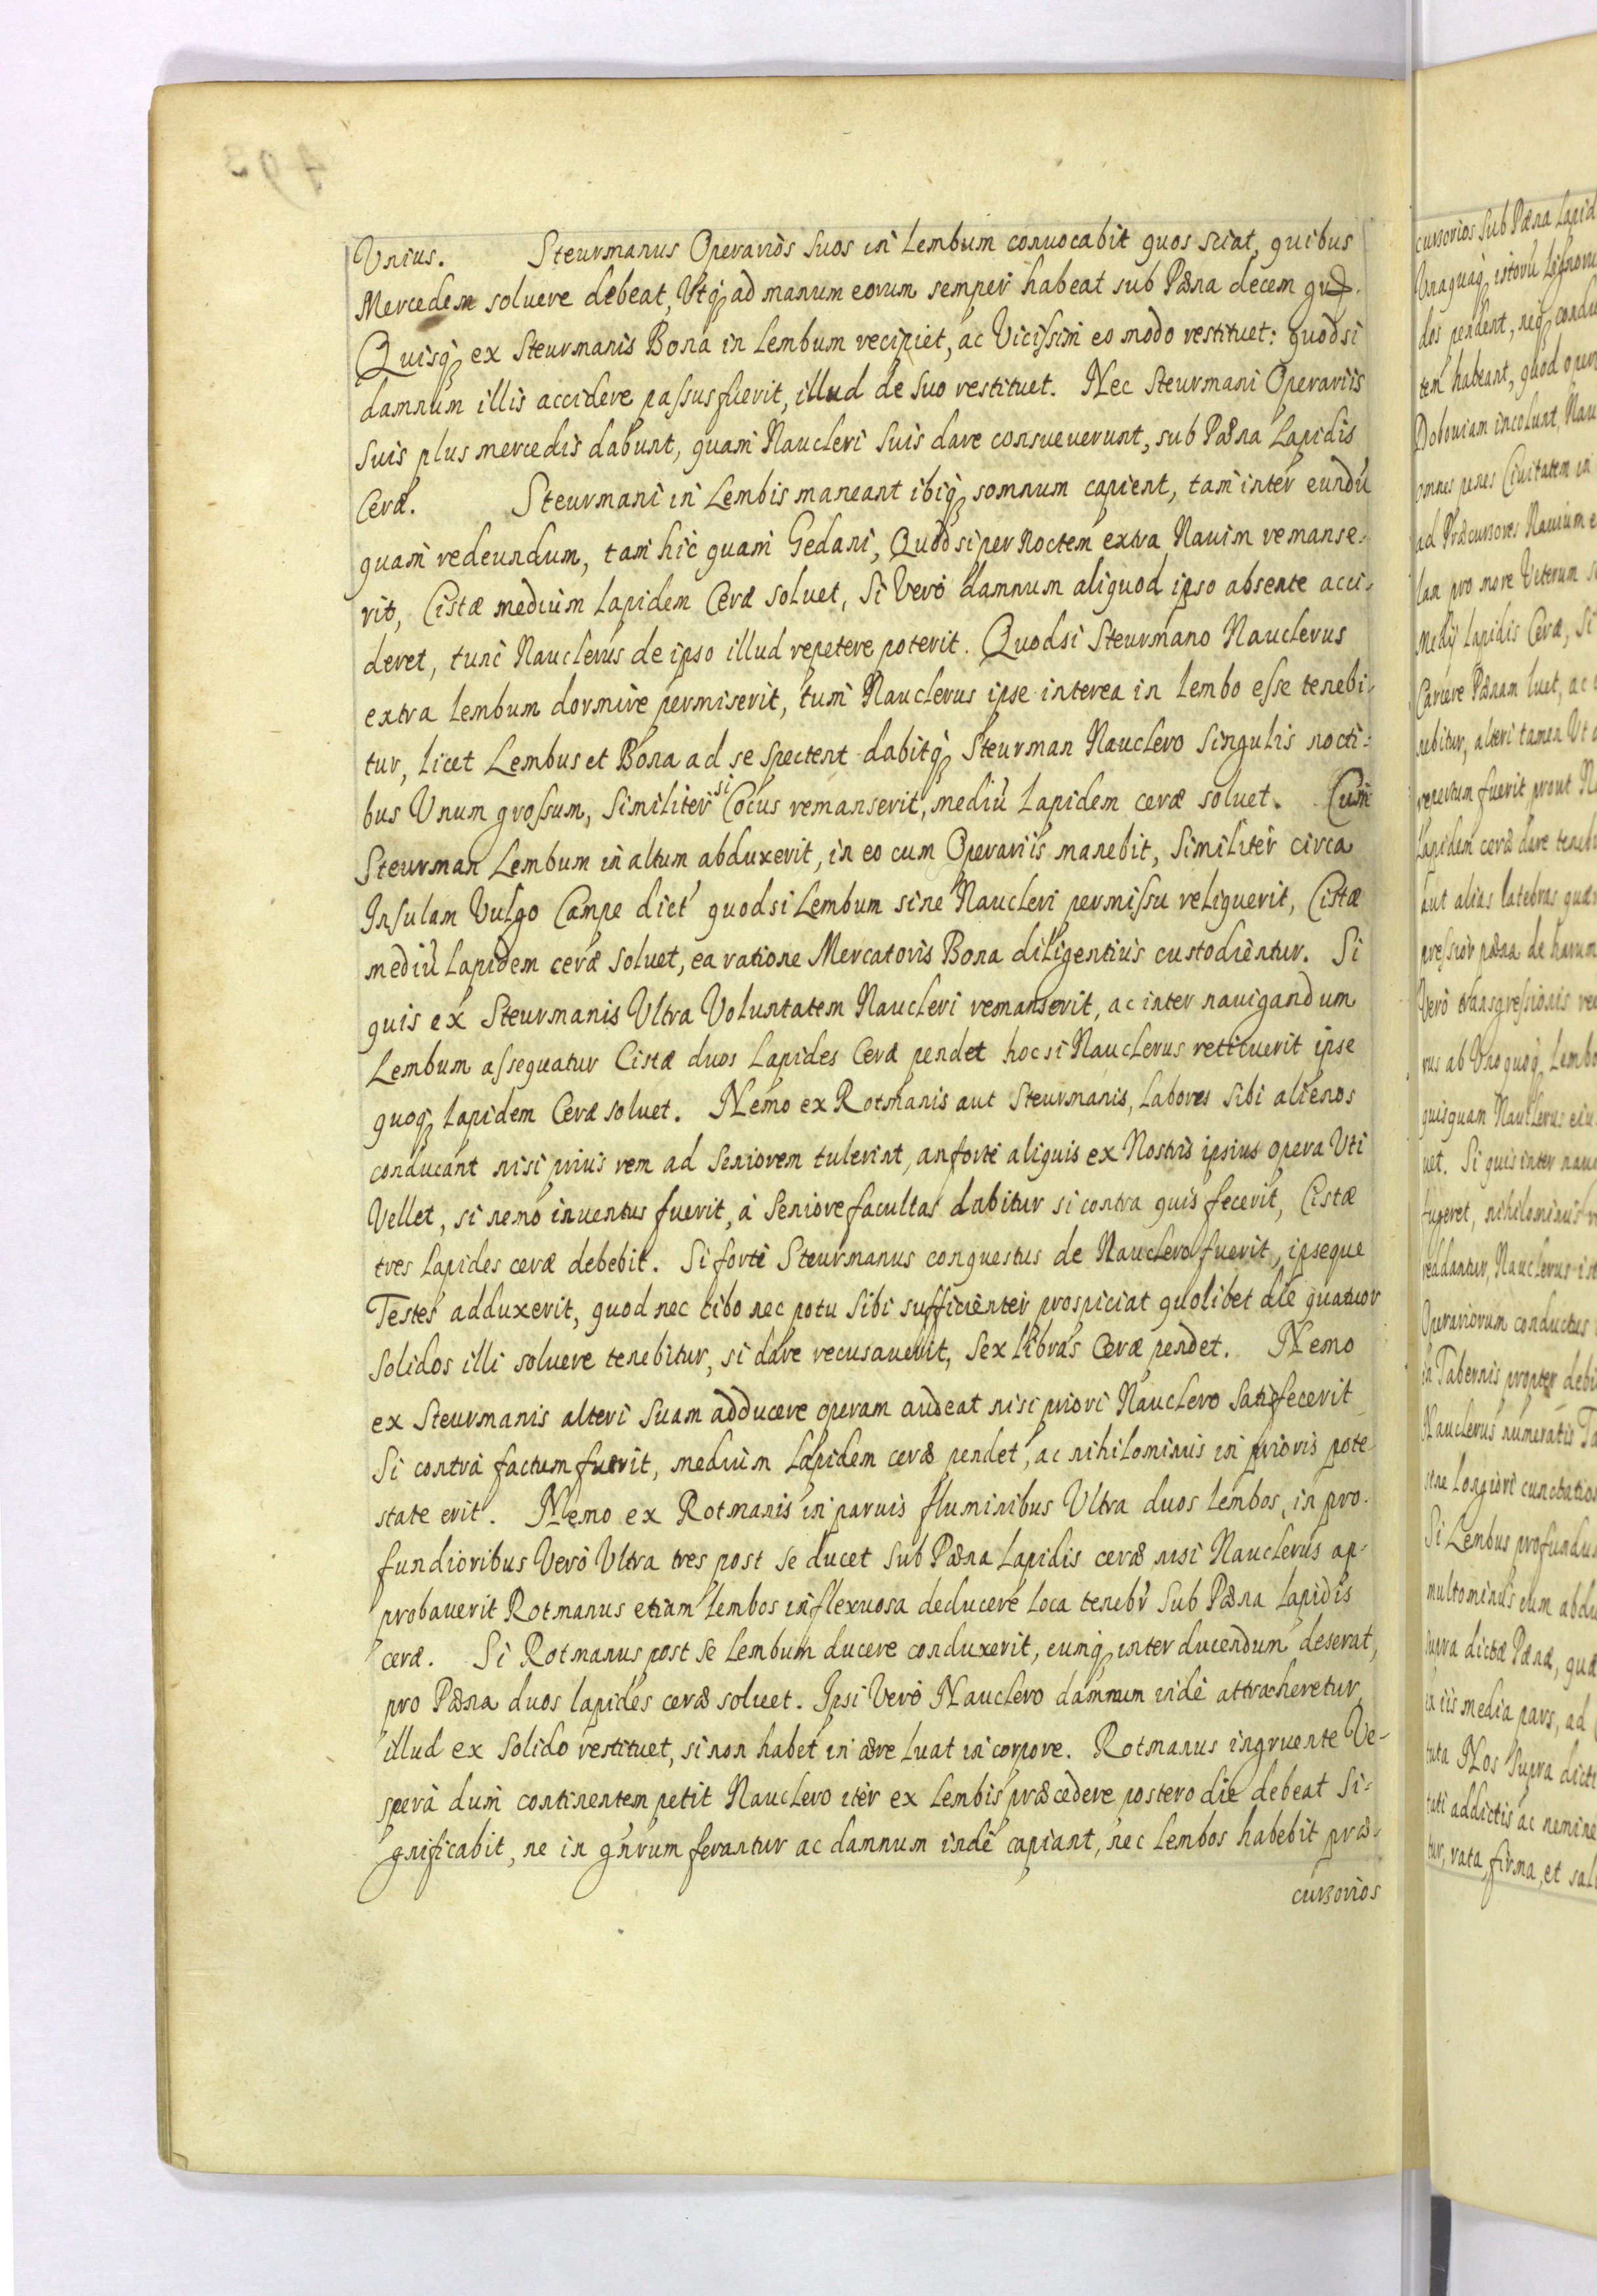 Vnius. Steurmanus Operarios suos in Lembum conuocabit quos sciat, quibus
Mercedem soluere debeat, Utq̣ ad manum eorum semper habeat sub Pæna decem
Quisq̣ ex Steurmanis Bona in Lembum recipiet, ac Vicissim eo modo restituet: quodsi
damnum illis accidere passus fuerit, illud de suo restituet. Nec Steurmani Operariis
suis plus mercedis dabunt, quam Naucleri suis dare consueuerunt, sub Pæna Lapidis
Ceræ. Steurmani in Lembis maneant ibiq̣ somnum capient, tam inter eundū
quam redeundum, tam hic quam Gedani, Quod si per noctem extra Nauim remanse-
rit, Cistæ medium Lapidem Ceræ soluet, Si Vero damnum aliquod ipso absente acci-
deret, tunc Nauclerus de ipso illud repetere poterit. Quodsi Steurmano Nauclerus
extra Lembum dormire permiserit, tum Nauclerus ipse interea in Lembo esse tenebi-
tur, licet Lembus et Bona ad se spectent dabitq̣ Steurman Nauclero Singulis nocti-
bus Unum grossum, Similiter si Cocus remanserit, mediū Lapidem ceræ soluet. Cum
Steurman Lembum in altum abduxerit, in eo cum Operariis manebit, Similiter circa
Insulam Vulgo Campe dict quodsi Lembum sine Naucleri permissu reliquerit, Cistæ
mediū Lapidem ceræ soluet, ea ratione Mercatoris Bona diligentius custodientur. Si
quis ex Steurmanis Ultra Voluntatem Naucleri remanserit, ac inter nauigandum
Lembum assequatur Cistæ duos Lapides Ceræ pendet hoc si Nauclerus retituerit ipse
quoq̣ Lapidem Ceræ soluet. Nemo ex Rotmanis aut Steurmanis, Labores sibi alienos
conducant nisi prius rem ad Seniorem tulerint, an forte aliquis ex Nostris ipsius opera Uti
Vellet, si nemo inuentus fuerit, à Seniore facultas dabitur si contra quis fecerit, Cistæ
tres Lapides ceræ debebit. Si forte Steurmanus conquestus de Nauclero fuerit, ipseque
Testes adduxerit, quod nec cibo nec potu Sibi sufficienter prospiciat quolibet die quatuor
Solidos illi soluere tenebitur, si dare recusauerit, Sex libras Ceræ pendet. Nemo
ex Steurmanis alteri suam adducere operam audeat nisi priori Nauclero Satisfecerit
Si contra factum fuerit, medium Lapidem ceræ pendet, ac nihilominus in prioris pote-
state erit. Nemo ex Rotmanis in paruis fluminibus Ultra duos Lembos, in pro-
fundioribus Verò Ultra tres post se ducet Sub Pæna Lapidis ceræ nisi Nauclerus ap-
probauerit Rotmanus etiam Lembos in flexuosa deducere Loca tenebr Sub Pæna Lapidis
ceræ. Si Rotmanus post se Lembum ducere conduxerit, eumq̣ inter ducendum deserat,
pro Pæna duos lapides ceræ soluet. Ipsi Verò Nauclero damnum inde attraheretur
illud ex Solido restituet, si non habet in ære Luat in corpore. Rotmanus ingruente Ve-
spera dum continentem petit Nauclero iter ex Lembis præcedere postero die debeat Si-
gnificabit, ne in ferantur ac damnum inde capiant, nec Lembos habebit præ-
cursorios
cursorios Sub Pæna Lapid
Unaquaq̣ istorū Lignoru
dos pendent, neq̣ condu
tem habeant, quod oper
Doboviam incolunt, Nau
omnes penes Ciuitatem in
ad Præcursores Nauium e
lan pro more Veterum
Medij Lapidis Ceræ, Si
Carcere Pænam luet, ac
nebitur, alteri tamen Ut
repertum fuerit prout N
Lapidem ceræ dare teneb
aut alias latebras quær
pressior pæna de harum
Verò transgressionis re
rus ab Unoquoq̣ Lembo
quisquam Nauclerus eiu
uet. Si quis inter nau
fugeret, nihilominus
reddantur, Nauclerus ist
Operariorum conductus
in Tabernis propter debi
Nauclerus numeratis Ta
sine Longiori cunctatio
Si Lembus profundus
multominus eum abdu
supra dictæ Pænæ, quæ
ex iis media pars, ad
tuta Nos Supra dicti
tati addictis ac nemine
tur, rata, firma, et sal
493